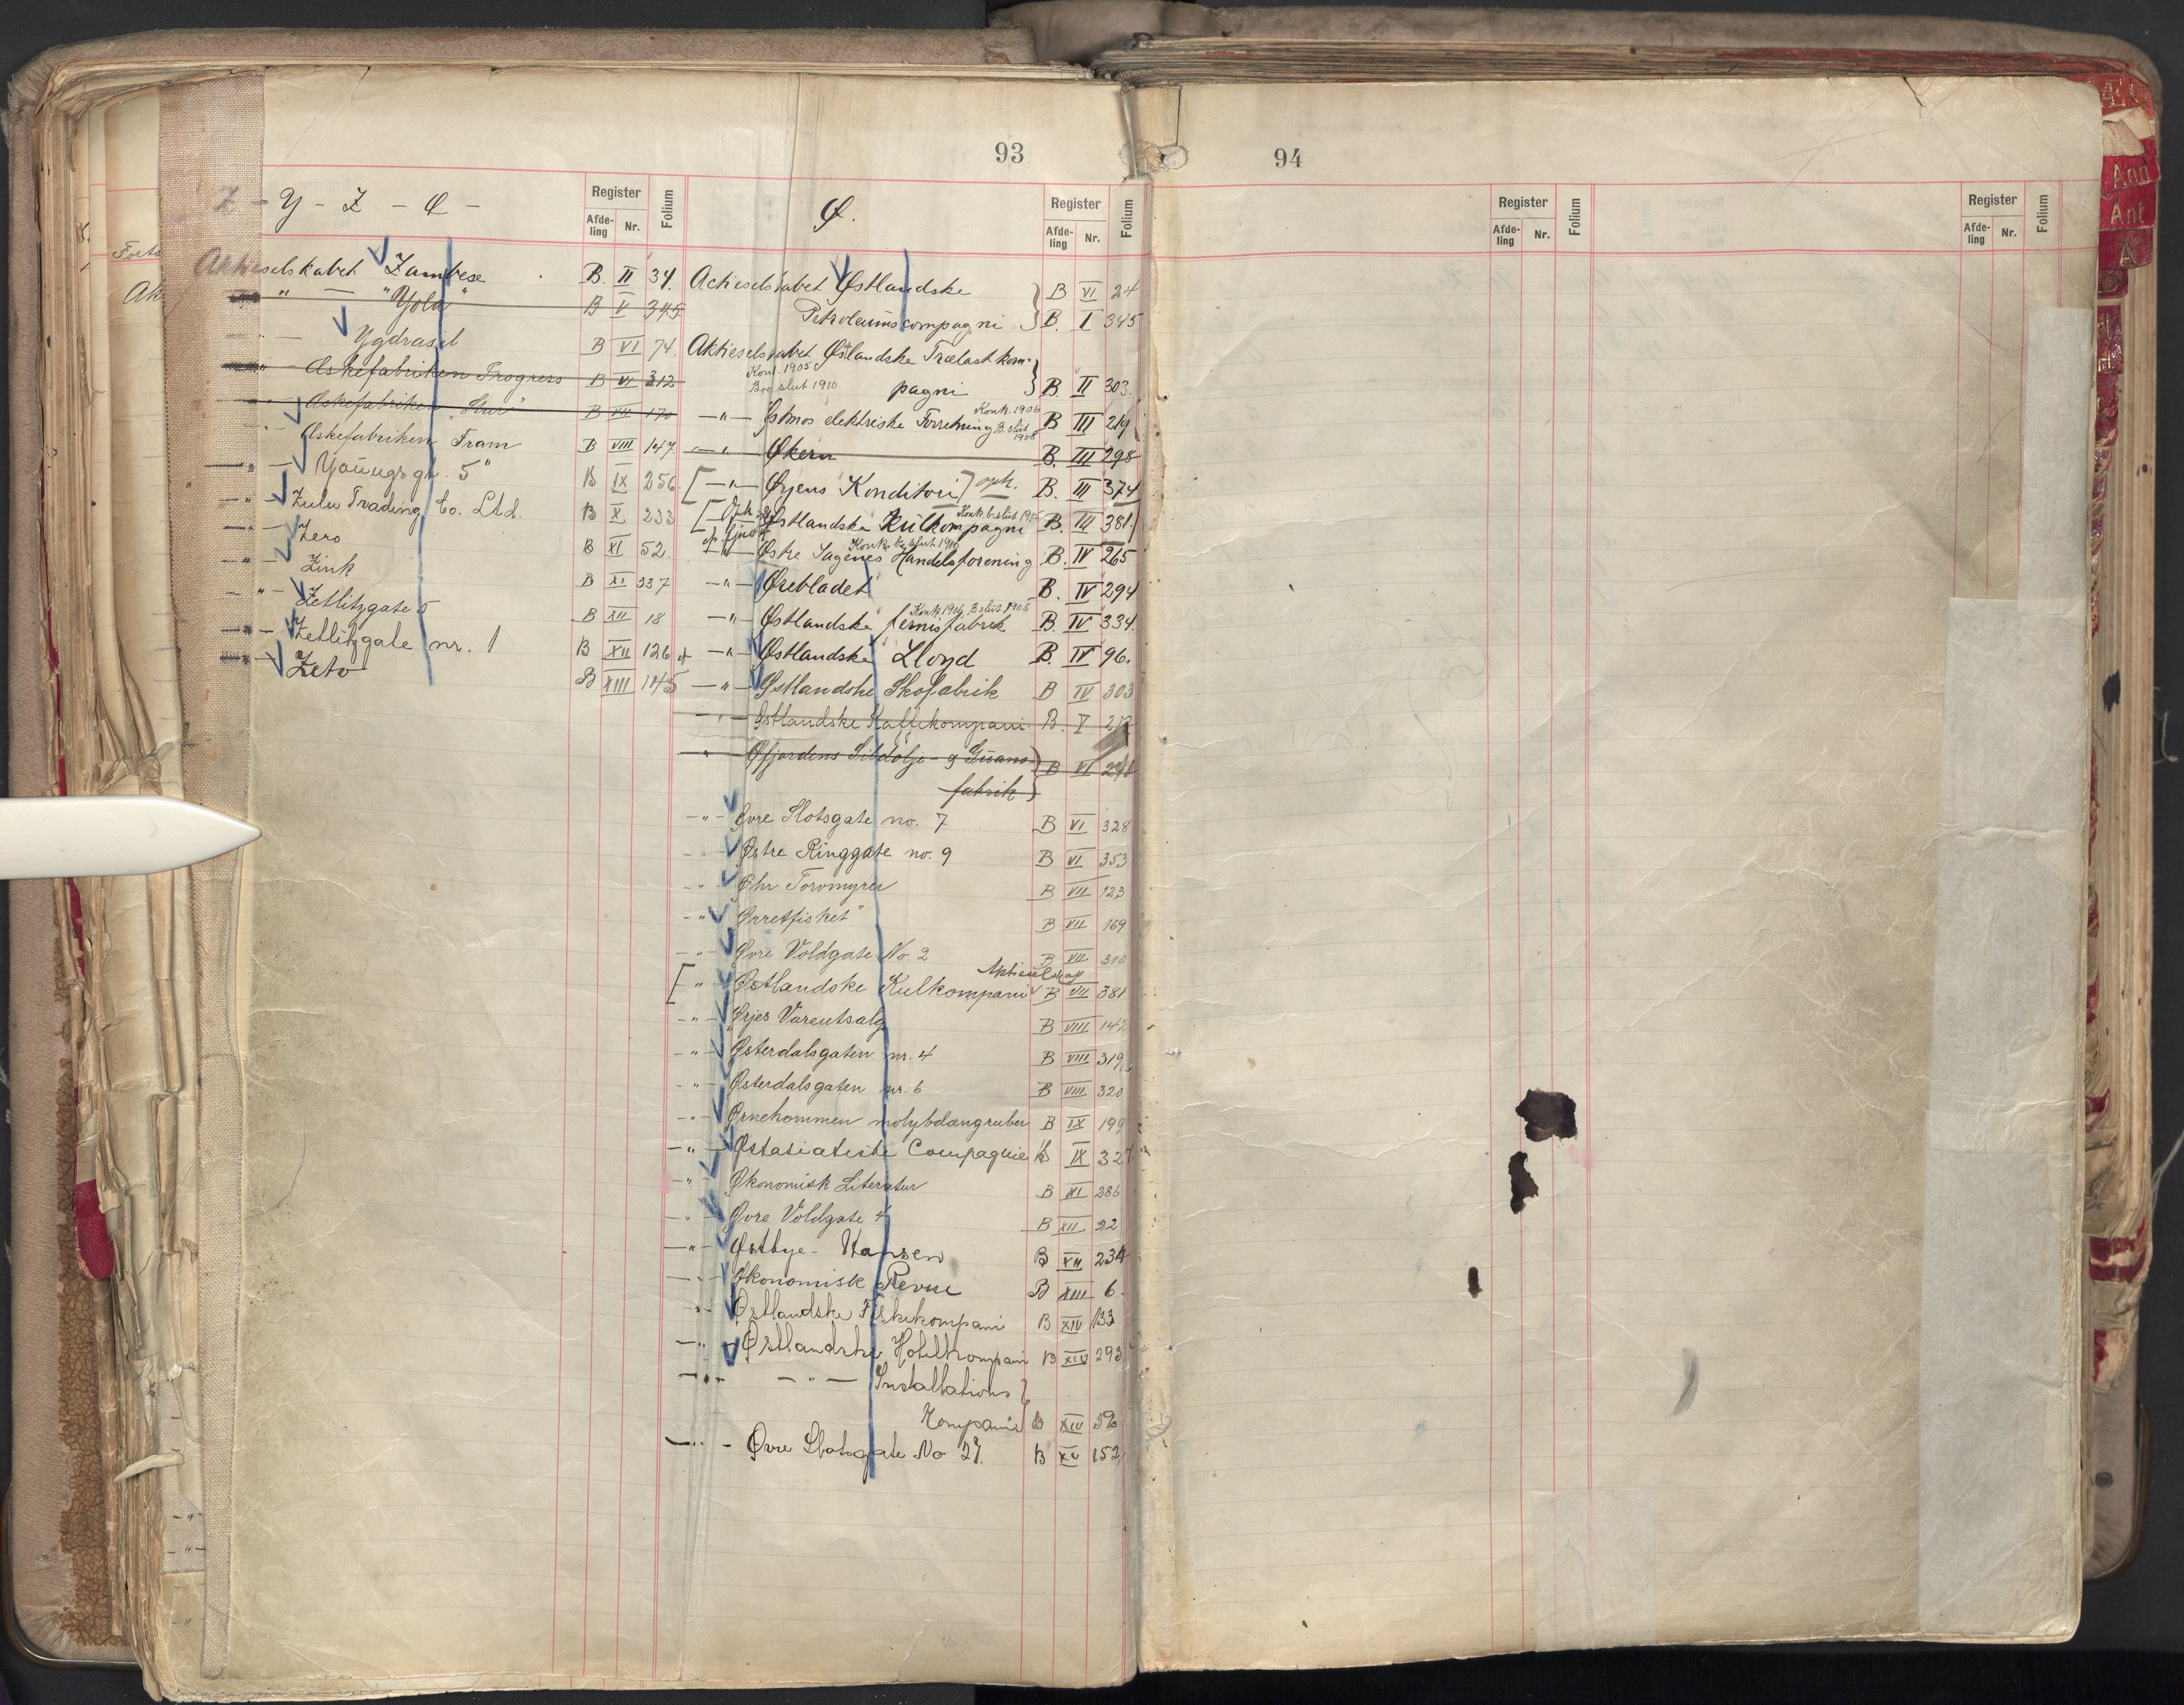 93
Y - Z - Ø -
Register
Afde-
ling
Nr.
Folium
Aktieselskabet Zambese B. II 34.
" — "Yola" B V 345
— Ygdrasil B VI 74.
" — Æskefabriken Progress B VI 312
" Æskefabriken "Stur" B VII 170
" — Æskefabriken Fram B VIII 147.
— " — Youngsgt. 5" B IX 256
— " — Zulu Trading Co. Ltd. B X 233
— " — Zero B XI 52.
— " — Zink B XI 337
— " — Zetlitzgate 5 B XII 18
— " — Zetlitzgate nr. 1 B XII 126
— " — Zeto B XIII 145
Ø.
Register
Afde-
ling
Nr.
Folium
Actieselskabet Østlandske B VI 24
Petroleumscompagni B. I 345
Aktieselskabet Østlandske Trælastkom-
Konk. 1905
Bos slut 1910
pagni B. II 303.
Konk. 1906
— " — Østmos elektriske Forretning B. slut 1908 B III 214
— " — Økern B. III 298
[— " — Ørjens Konditori] oph. B. III 374
Konk. b. slut 1915
[— Østlandske Kulkompagni B. III 381.
Konk. Bo slut 1910
— " — Østre Sagenes Handelsforening B. IV 265
— " — Ørebladet B. IV 294
Konk. 1906 B slut 1908
— " — Østlandske fernisfabrik B. IV 334.
— " — Østlandske Lloyd B. IV 96.
— " — Østlandske Skofabrik B IV 303
— " — Østlandske Kaffekompani B. V 212
" — Øfjordens Sildolje- og Guano-
fabrik B VI 241
— " — Øvre Slotsgate no. 7 B VI 328
— " — Østre Ringgate no. 9 B VI 353
— " — Øhr Torvmyrer B VII 123
— " — Ørretfisket" B VII 169
— " — Øvre Voldgate No. 2 B VII 310
Aktieselskap
[— " — Østlandske Kulkompani B VII 381
— " — Ørjes Vareutsalg B VIII 142
— " — Østerdalsgaten nr. 4 B VIII 319
— " — Østerdalsgaten nr. 6 B VIII 320
— " — Ørnehommen molybdængruber B IX 199
— " — Østasiatiske Compagnie B IX 327
— " — Økonomisk Literatur B XI 286
— " — Øvre Voldgate 4 B XII 22
— " — Østbye-Hansen B XII 234
— " — Økonomisk Revue B XIII 6.
— " — Østlandske Fiskekompani B XIV 133
— " — Østlandske Hotellkompani B XIV 293
— " — — " — Installations
Kompani B XIV 390
— " — Øvre Slotsgate No 27. B XV 152
94
Register
Afde-
ling
Nr.
Folium
Register
Afde-
ling
Nr.
Folium
And
Ant
A